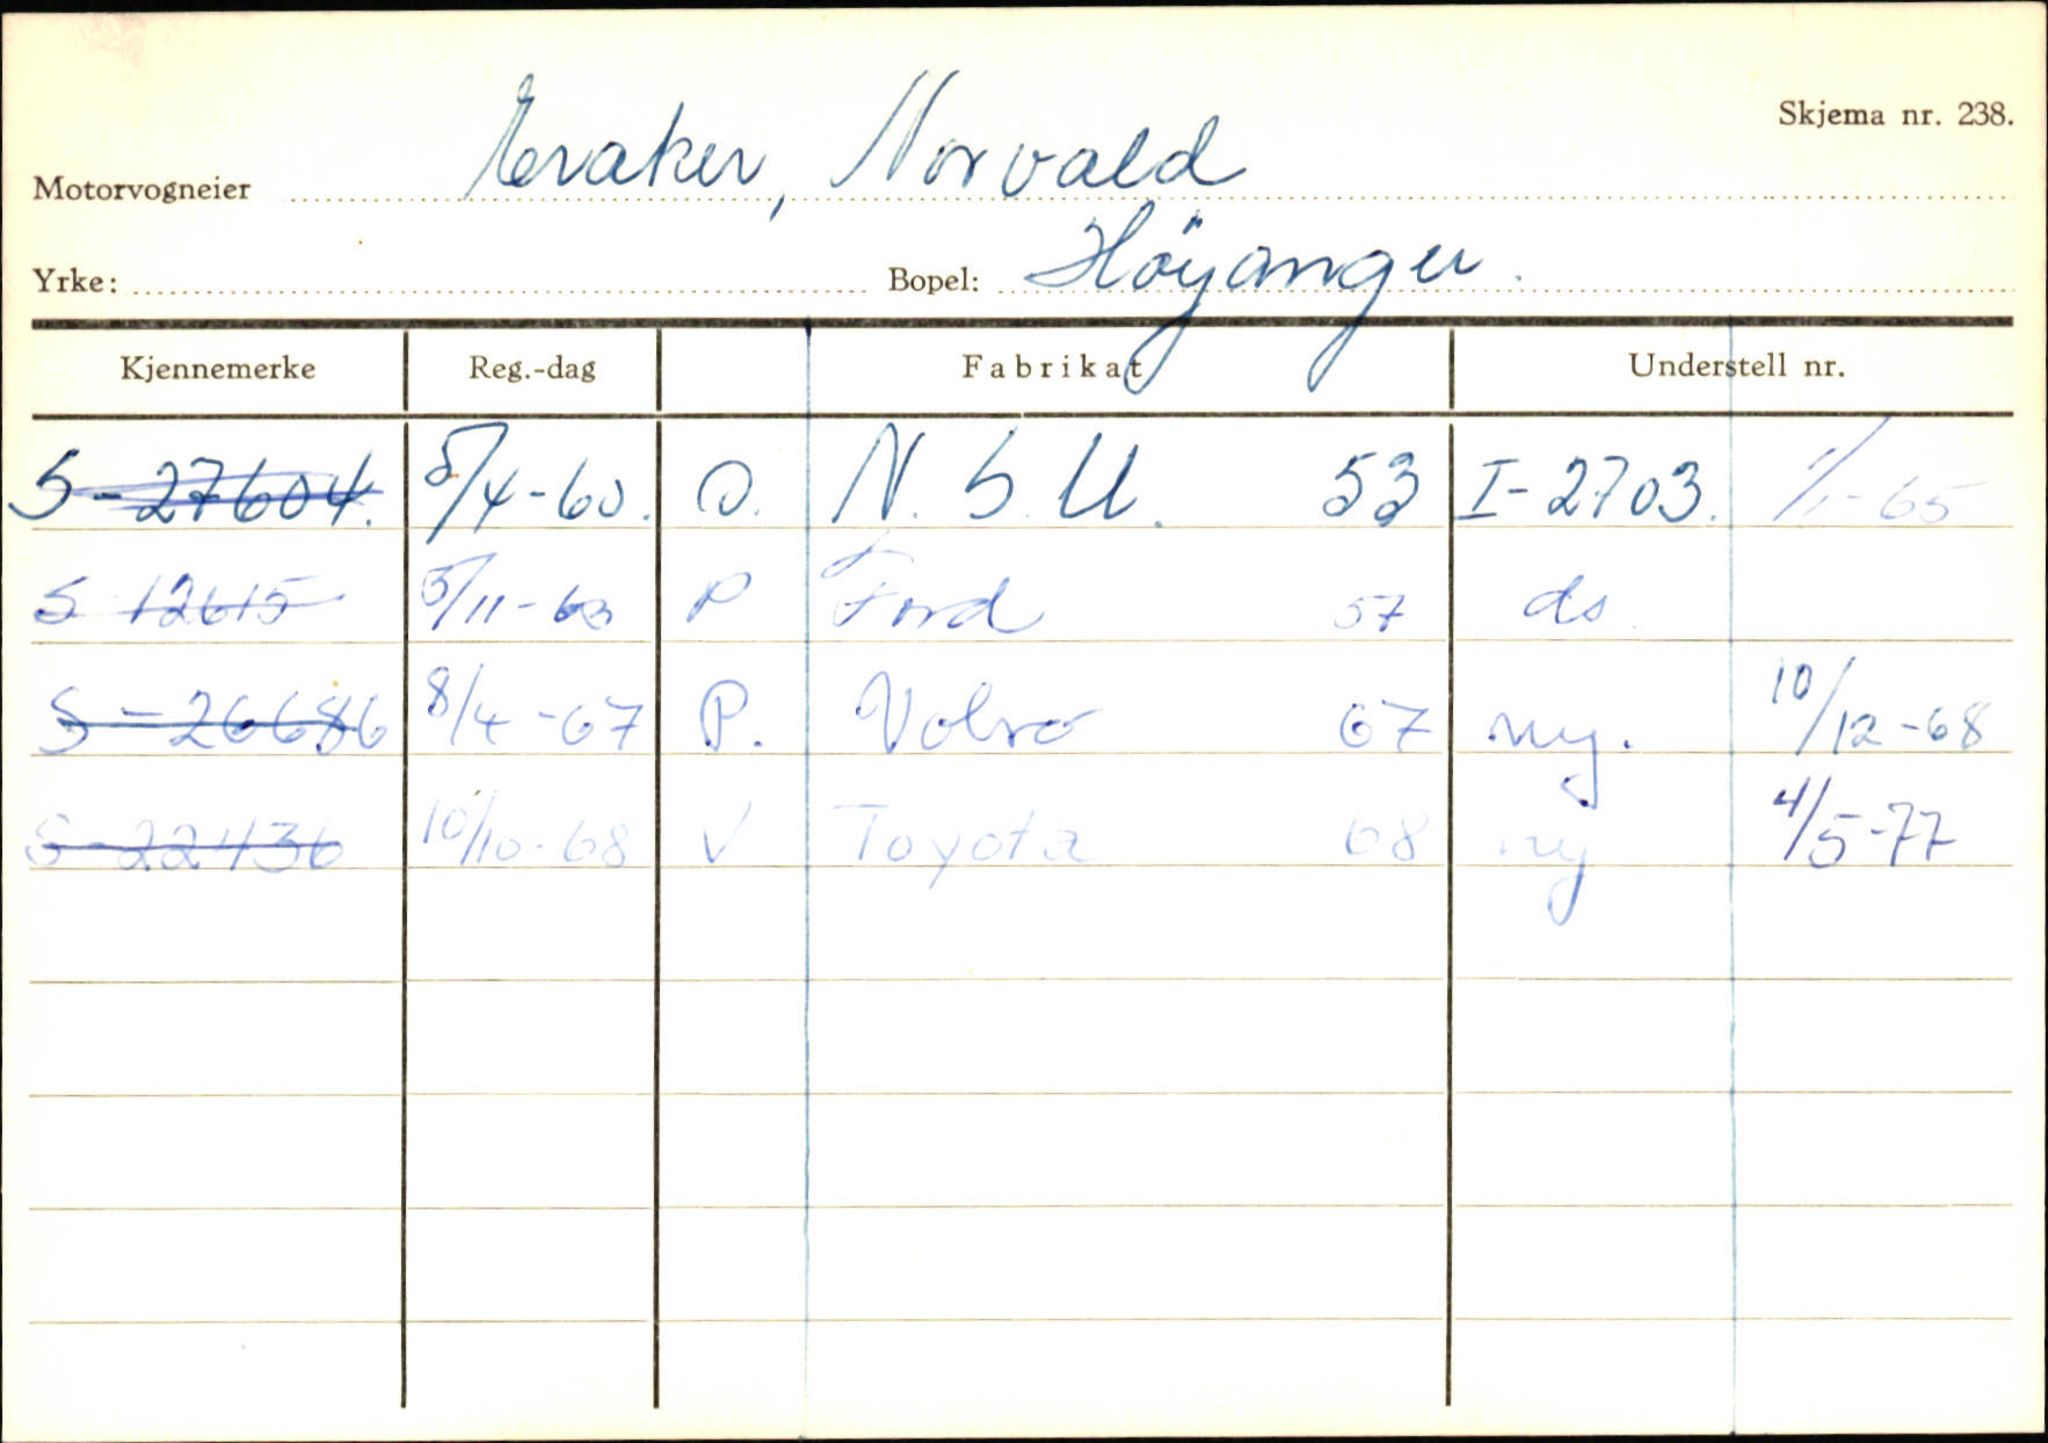 Skjema nr. 238.
Motorvogneier Eraker, Norvald
Yrke: Bopel: Höyanger.
Kjennemerke Reg.-dag Fabrikat Understell nr.
S-27604. 8/4-60. O. N.S.U. 53 I-2703. 1/1-65
S 12615 5/11-63 P Ford 57 ds
S-26686 8/4-67 P. Volvo 67 ny. 10/12-68
S-22436 10/10-68 V Toyota 68 ny 4/5-77